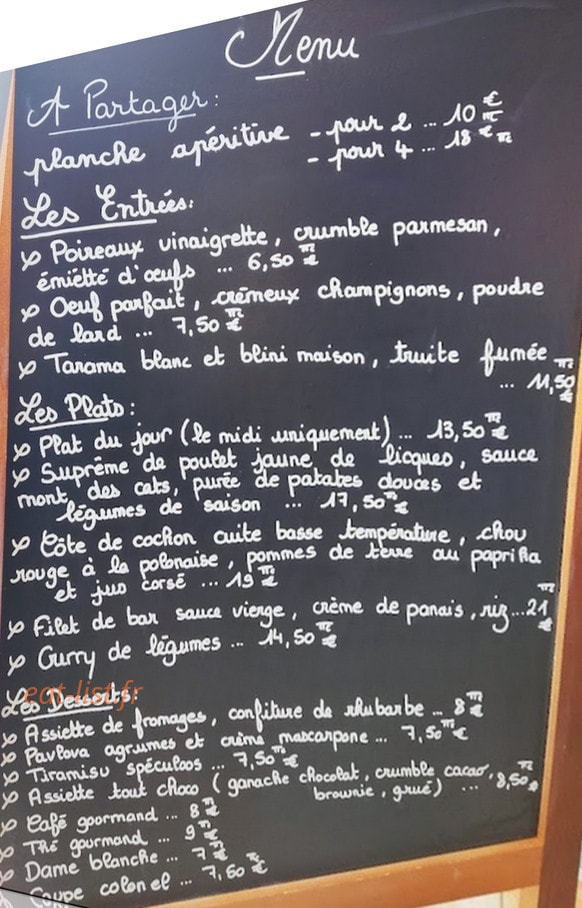 Menu
A Partager:
planche apéritive - pour 2 ... 10 €
- pour 4 ... 18 €
Les Entrées:
Poireaux vinaigrette, crumble parmesan,
émietté d'œufs ... 6,50 €
Oeuf parfait, crémeux champignons, poudre
de lard ... 7,50 €
Tarama blanc et blini maison, truite fumée
... 11,50 €
Les Plats:
Plat du jour (le midi uniquement) ... 13,50 €
Suprême de poulet jaune de licques, sauce
mont, des cats, purée de patates douces et
légumes de saison ... 17,50 €
Côte de cochon cuite basse température, chou
rouge à la polonaise, pommes de terre au paprika
et jus corsé ... 19 €
Filet de bar sauce vierge, crème de panais, riz ... 21 €
Curry de légumes ... 14,50 €
eat-list.fr
Les Desserts:
Assiette de fromages, confiture de rhubarbe ... 8 €
Pavlova agrumes et crème mascarpone ... 7,50 €
Tiramisu spéculoos ... 7,50 €
Assiette tout choco (ganache chocolat, crumble cacao,
brownie, grué) ... 8,50 €
Café goormand ... 8 €
Thé gourmand ... 9 €
Dame blanche ... 7 €
Coupe colonel ... 7,50 €